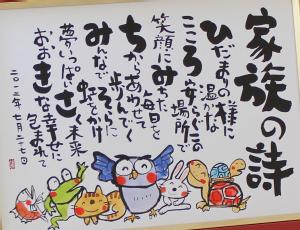 家族の詩
ひだまりの様に
温かな
こころ安らぐ
場所で
笑顔にみちた
毎日を
ちからあわせて
歩んでく
みんなでそらに
虹をかけ
夢いっぱいさく未来
おおきな幸せに
包まれて
二〇一三年 七月二十七日